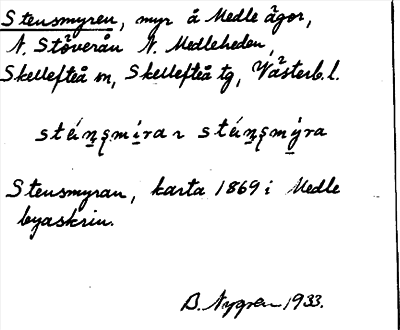 Stensmyren, myr å Medle ägor,
N. Stöverån N. Medleheden,
Skellefteå m, Skellefteå tg, Västerb. l.
Stensmyran, karta 1869 i Medle
byaskrin.
B. Nygren 1933.